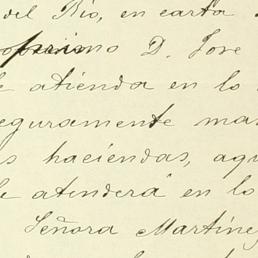 del Rio, en carta
primo D. Jose
le atienda en lo
seguramente mas
s haciendas, aqu
le atenderá en lo
Señora Martine